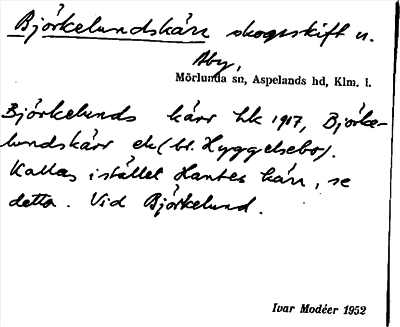 Björkelundskärr skogsskift n.
Åby,
Mörlunda sn, Aspelands hd, Klm. l.
Björkelunds kärr hk 1917, Björke-
lundskärr ek (bl. Hyggelsebo).
Kallas i stället Hantes kärr, se
detta. Vid Björkelund.
Ivar Modéer 1952